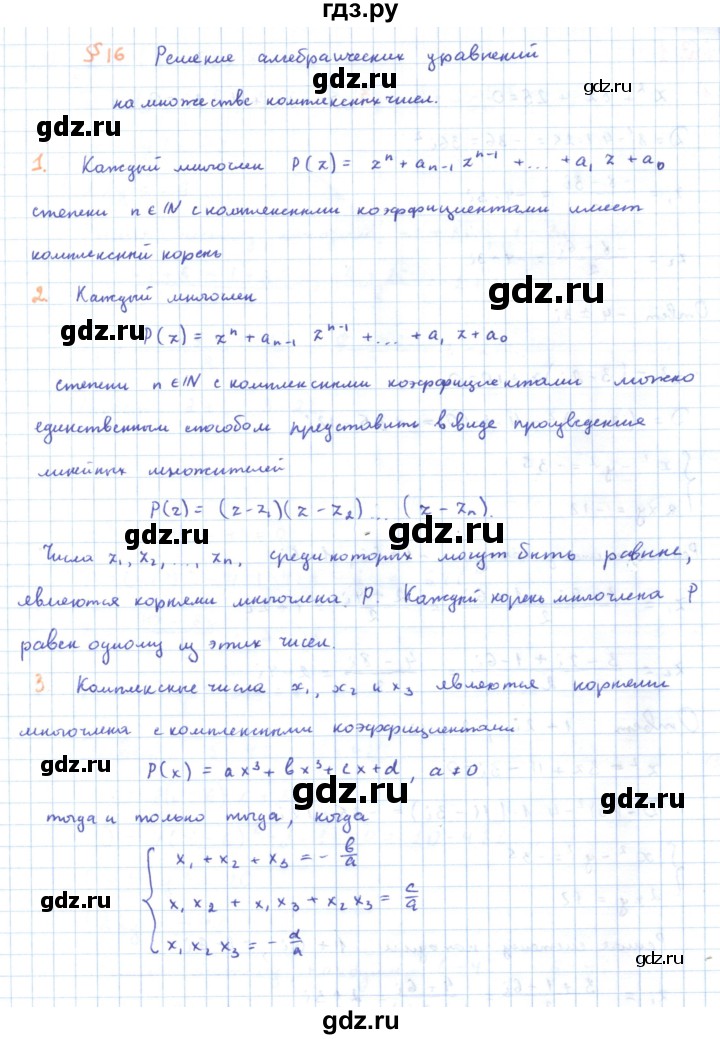 гдз.ру
§ 16 Решение алгебраических уравнений
gdz.ru gdz.ru
на множестве комплексных чисел.
gdz.ru gdz.ru
1. Каждый многослен P(z) = zⁿ + aₙ₋₁ zⁿ⁻¹ + ... + a₁ z + a₀
степени n ∈ IN с комплексными коэффициентами имеет
комплексный корень
gdz.ru
2. Каждый многослен
gdz.ru
P(z) = zⁿ + aₙ₋₁ zⁿ⁻¹ + ... + a₁ z + a₀
степени n ∈ IN с комплексными коэффициентами можно
единственным способом представить в виде произведения
линейных множителей
P(z) = (z - z₁)(z - z₂) ... (z - zₙ).
gdz.ru gdz.ru
Числа z₁, z₂, ..., zₙ, среди которых могут быть равные,
являются корнями многочлена P. Каждый корень многочлена P
равен одному из этих чисел.
3 Комплексные числа x₁, x₂ и x₃ являются корнями
многочлена с комплексными коэффициентами
gdz.ru
P(x) = ax³ + bx³ + cx + d, a ≠ 0
gdz.ru gdz.ru
тогда и только тогда, когда
x₁ + x₂ + x₃ = - b/a
gdz.ru
x₁ x₂ + x₁ x₃ + x₂ x₃ = c/a
x₁ x₂ x₃ = - d/a
gdz.ru
gdz.ru